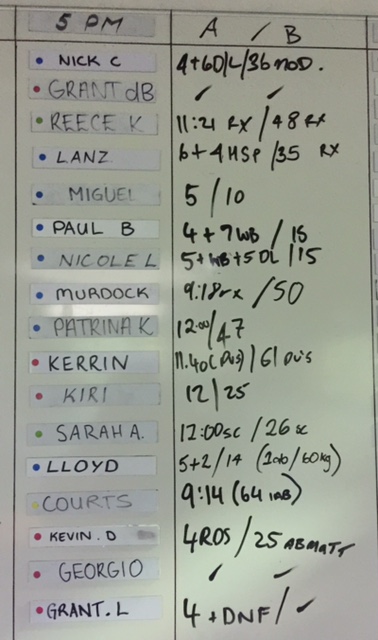 5 PM A / B
NICK C 4+6DL/36 MOD.
GRANT dB ✓ ✓
REECE K 11:21 RX / 48 RX
LANZ 6+4HSP/35 RX
MIGUEL 5/10
PAUL B 4+7WB / 15
NICOLE L 5+WB+5DL/15
MURDOCK 9:18rx / 50
PATRINA K 12:00/47
KERRIN 11.40 / 61
KIRI 12/25
SARAH A. 12:00sc / 26 sc
LLOYD 5+2/14 (100/60kg)
COURTS 9:14 (64
KEVIN. D 4 ROS / 25 ABMATT
GEORGIO ✓ ✓
GRANT. L 4 + DNF / ✓